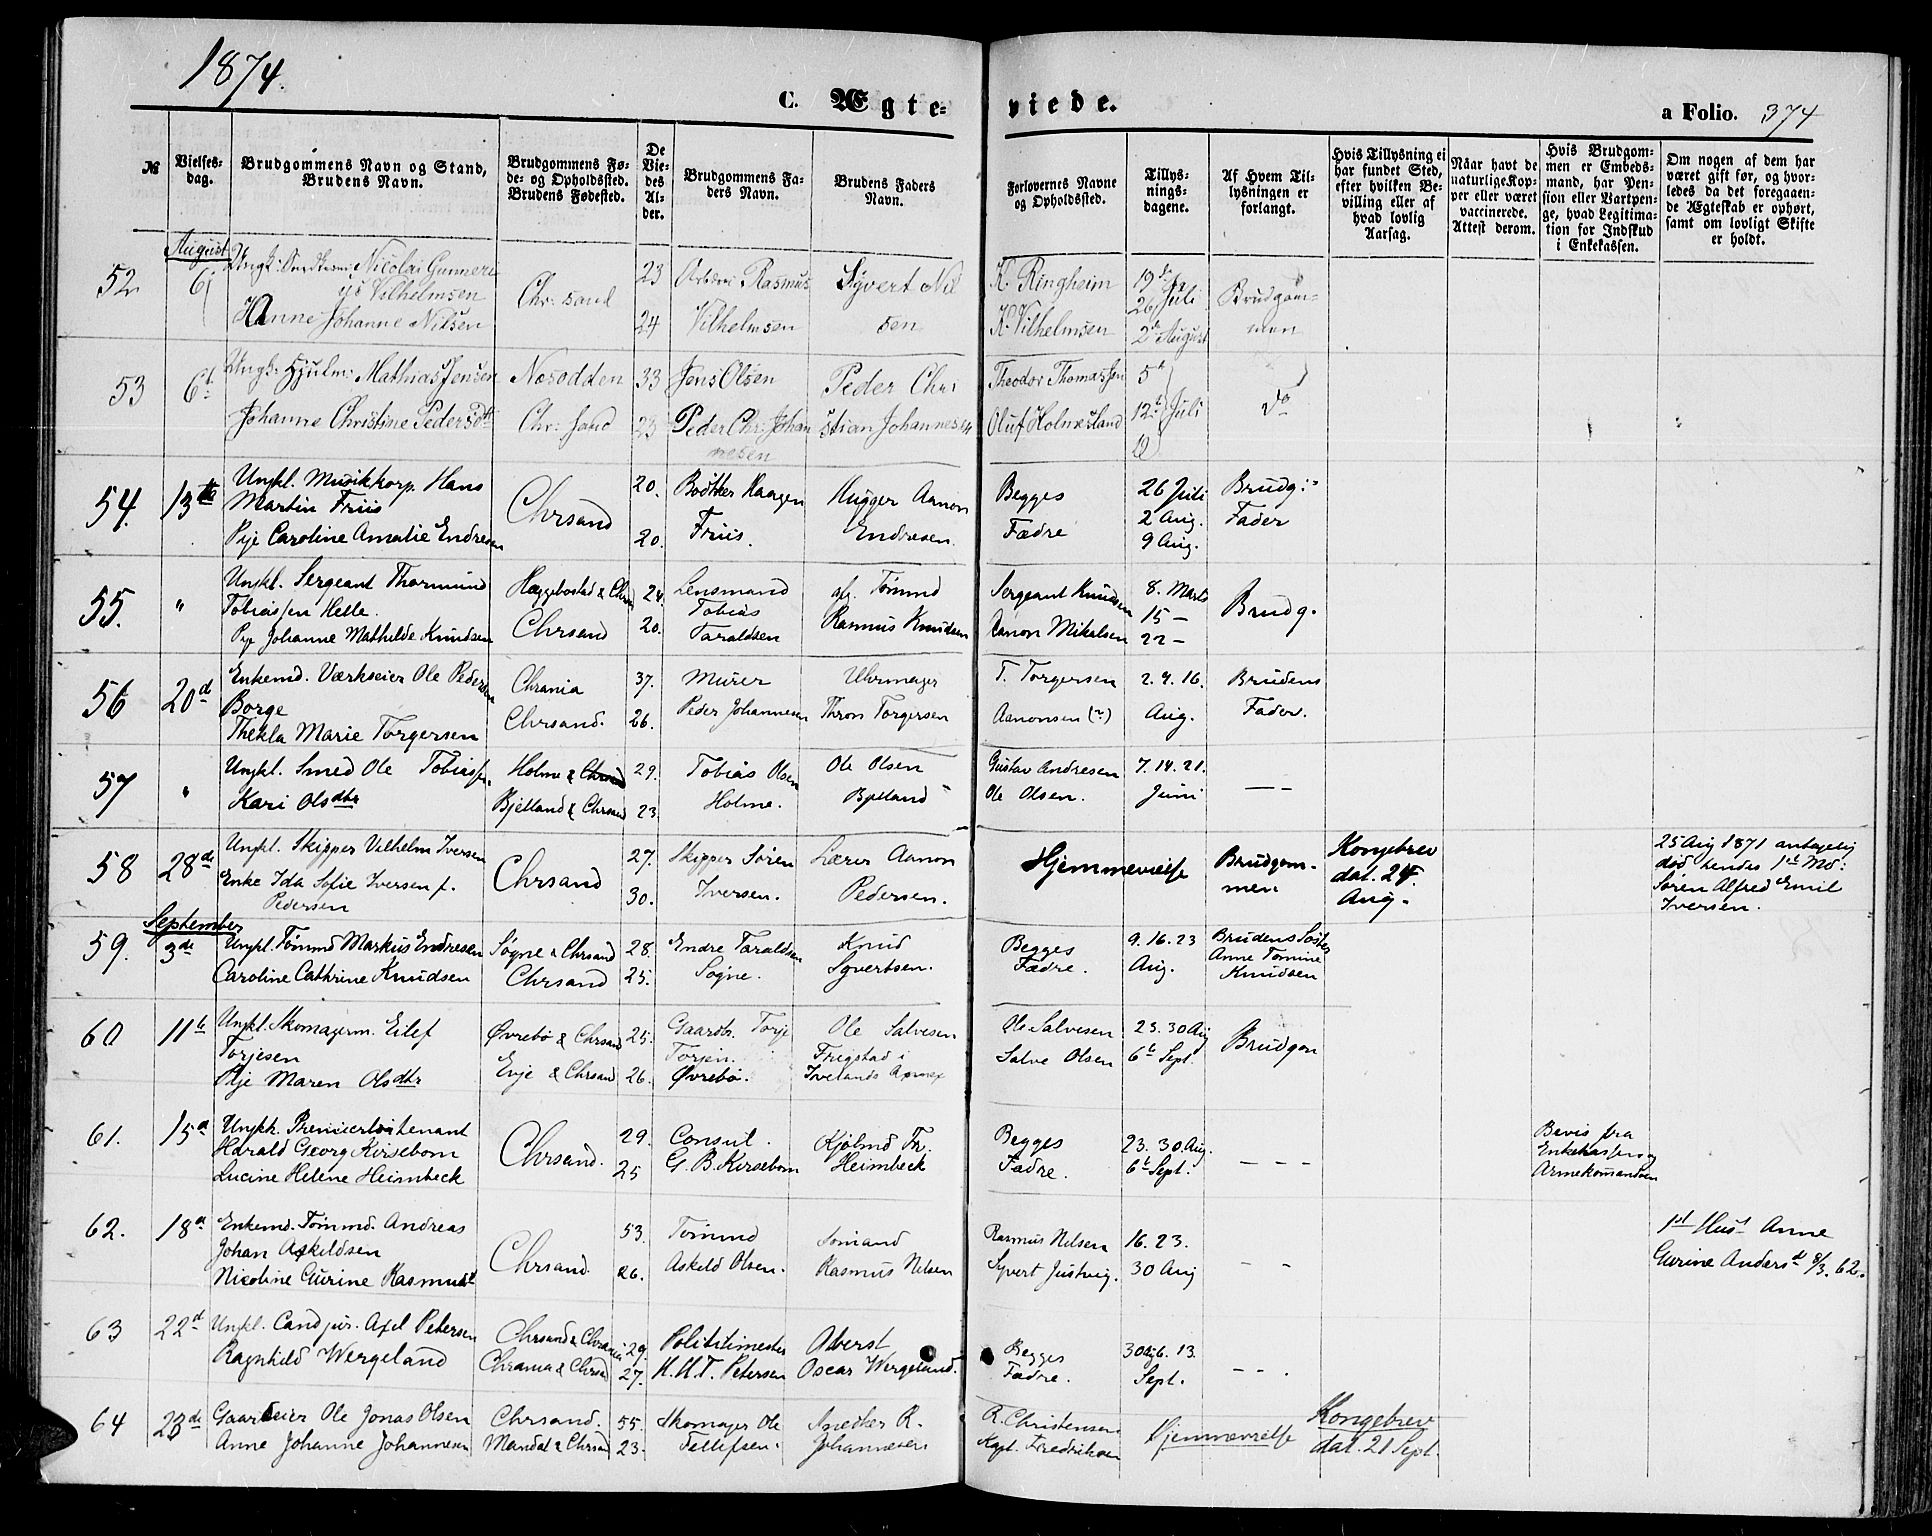 1874.
C. Ægte-
viede.
a Folio. 374
№
Vielses-
dag.
Brudgommens Navn og Stand,
Brudens Navn.
Brudgommens Fø-
de- og Opholdssted.
Brudens Fødested.
De
Vie-
des
Al-
der.
Brudgommens Fa-
ders Navn.
Brudens Faders
Navn.
Forlovernes Navne
og Opholdssted.
Tillys-
nings-
dagene.
Af Hvem Til-
lysningen er
forlangt.
Hvis Tillysning ei
har fundet Sted,
efter hvilken Be-
villing eller af
hvad lovlig
Aarsag.
Naar havt de
naturlige Kop-
per eller været
vaccinerede.
Attest derom.
Hvis Brudgom-
men er Embeds-
mand, har Pen-
sion eller Vartpen-
ge, hvad Legitima-
tion for Indskud
i Enkekassen.
Om nogen af dem har
været gift før, og hvor-
ledes da det foregaaen-
de Ægteskab er ophørt,
samt om lovligt Skifte
er holdt.
August
52 6 Ungk: Nicolai Gunneri
us Vilhelmsen
Hanne Johanne Nilsen
Chr: sand
23
24
Rasmus
Vilhelmsen
Syvert Nil
sen
K. Ringheim
K. Vilhelmsen
19de
26 Juli
2de August
Brudgom-
men
53 6t Ungk: Hjulm: Mathias Jensen
Johanne Christine Pedersdtr
Nesodden
Chr: sand
33
23
Jens Olsen
Peder Chr: Johan
nesen
Peder Chri
stian Johannesen
Theodor Thomassen
Oluf Holmesland
5te
12te Juli
19
do
54. 13de Ungkl. Musikkorp. Hans
Martin Friis
Pije Caroline Amalie Endresen
Chrsand
20.
20.
Bødtker Haagen
Friis.
Hugger Aanon
Endresen.
Begges
Fædre
26 Juli
2 Aug.
9 Aug.
Brudg:
Fader
55. " Ungkl. Sergeant Thormund
Tobiassen Helle.
Pije Johanne Mathilde Knudsen
Hæggebostad & Chrsand
Chrsand
24.
20.
Lensmand
Tobias
Taraldsen
afg. Tømmd
Rasmus Knudsen
Sergeant Knudsen
Aanon Mikalsen
8. Marts
15 —
22 —
Brudg.
56 20d Enkemd. Værkseier Ole Pedersen
Borge
Thekla Marie Torgersen
Chrania
Chrsand.
37.
26.
Murer
Peder Johannesen
Uhrmager
Thron Torgersen
T. Torgersen
Aanonsen (?)
2. 9. 16.
Aug.
Brudens
Fader.
57 " Ungkl. Smed Ole Tobiassen
Kari Olsdtr
Holme & Chrsand
Bjelland & Chrsand
29.
23.
Tobias Olsen
Holme.
Ole Olsen
Bjelland
Gustav Andresen
Ole Olsen.
7. 14. 21.
Juni
— —
58 28de Ungkl. Skipper Vilhelm Iversen
Enke Ida Sofie Iversen f.
Pedersen
Chrsand
27.
30.
Skipper Søren
Iversen.
Lærer Aanon
Pedersen.
Hjemmevielse
Brudgom-
men
Kongebrev
dat. 24.
Aug.
25 Aug 1871 antagelig
død hendes 1st Md:
Søren Alfred Emil
Iversen.
September
59. 3de Ungkl. Tømmd Markus Endresen
Caroline Cathrine Knudsen
Søgne & Chrsand
Chrsand
28.
25.
Endre Taraldsen
Søgne.
Knud
Syvertsen.
Begges
Fædre.
9. 16. 23
Aug.
Brudens Søster
Anne Tomine
Knudsen
60 11te Ungkl. Skomagerm. Eilef
Torjesen
Pije Maren Olsdtr
Øvrebø & Chrsand
Evje & Chrsand
25.
26.
Gaardbr. Torje
Torjen.
Øvrebø.
Ole Salvesen
Frigstad i
Ivelands Annex
Ole Salvesen
Salve Olsen
23. 30 Aug
6te Sept.
Brudgom
61. 15d Ungk. Premierløitenant
Harald Georg Kirsebom
Lucine Helene Heimbeck
Chrsand.
29.
25
Consul.
G. B. Kirsebom
Kjøbmd Fr.
Heimbeck
Begges
Fædre.
23. 30 Aug.
6te Sept.
— — —
Bevis fra
Enkekassen og
Armekomandoen
62. 18d Enkemd. Tømmd. Andreas
Johan Askildsen
Nicoline Gurine Rasmusd
Chrsand.
53.
26.
Tømmd
Askild Olsen.
Sømand
Rasmus Nelsen
Rasmus Nelsen
Syvert Justvig.
16. 23.
30 Aug
— —
1st Hust Anne
Gurine Andersd 8/3. 62.
63 22d Ungkl. Cand jur. Axel Petersen
Ragnhild Wergeland
Chrsand & Chrania
Chrania & Chrsand
29.
27.
Politimester
H. H. T. Petersen
Oberst
Oscar Wergeland.
Begges
Fædre.
30 Ag 6. 13.
Sept.
— — .
64 23de Gaardeier Ole Jonas Olsen
Anne Johanne Johannesen
Chrsand.
Mandal & Chrsand
55.
23.
Skomager Ole
Tellefsen.
Snedker R.
Johannesen
R. Christensen
Kapt. Fredriksen
Hjemmevielse
Kongebrev
dat. 21 Sept.